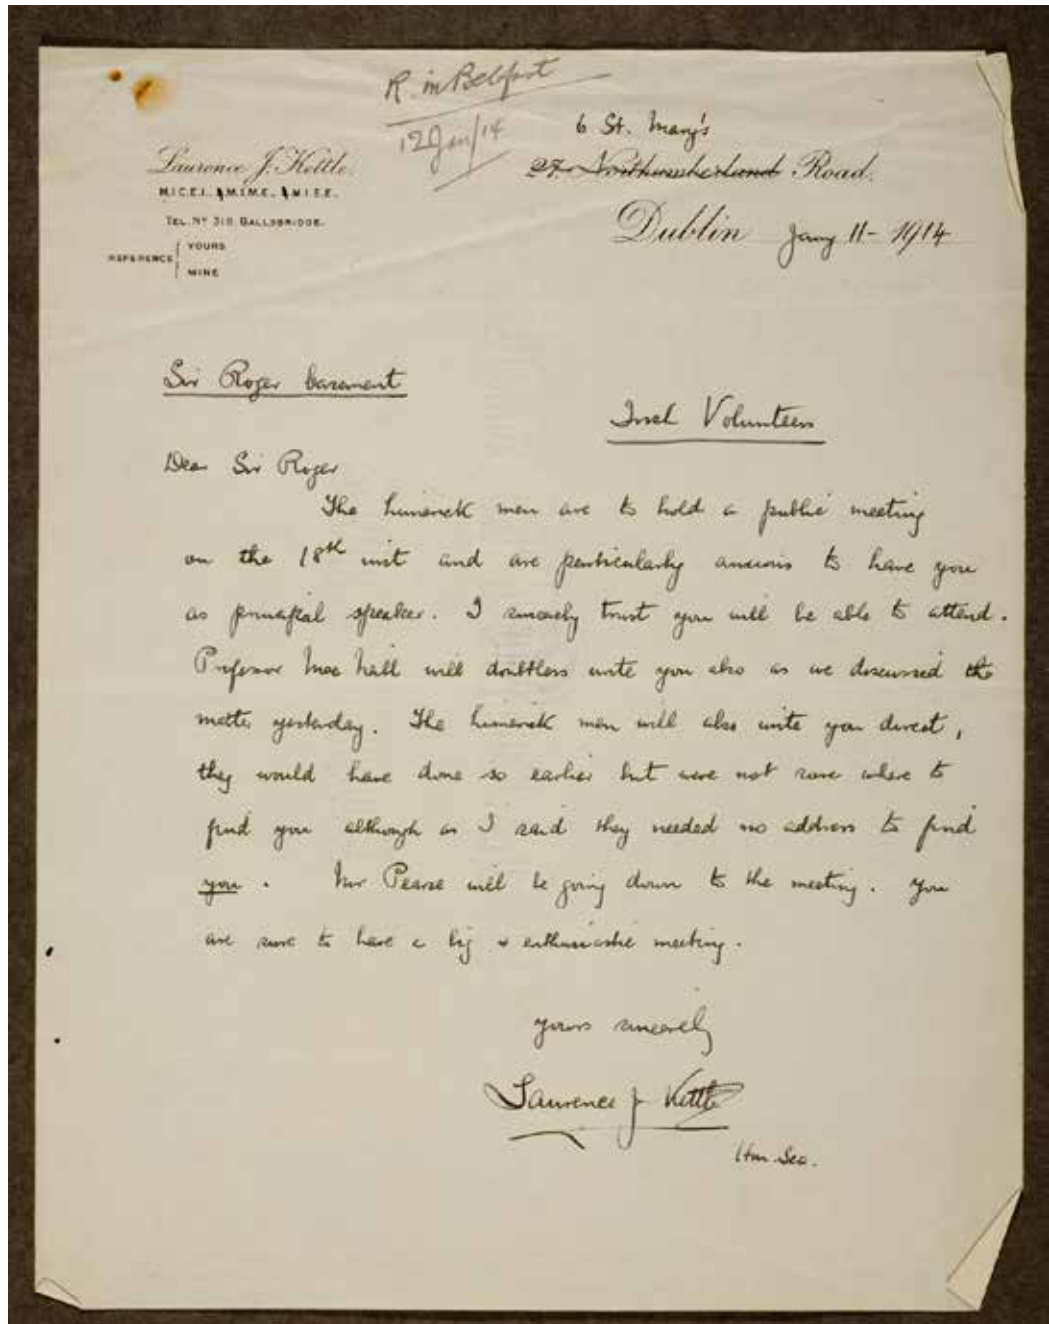 R. in Belfast
12 Jan/14
Laurence J. Kettle.
M.I.C.E.I., M.I.M.E., M.I.E.E.
TEL. Nº 318 BALLSBRIDGE.
REFERENCE { YOURS
MINE
6 St. Mary's
27. Northumberland Road.
Dublin Jany 11 - 1914
Sir Roger Casement
Irish Volunteers
Dear Sir Roger
The Limerick men are to hold a public meeting
on the 18th inst and are particularly anxious to have you
as principal speaker. I sincerely trust you will be able to attend.
Professor Mac Neill will doubtless write you also as we discussed the
matter yesterday. The Limerick men will also write you direct,
they would have done so earlier but were not sure where to
find you although as I said they needed no address to find
you. Mr Pearse will be going down to the meeting. You
are sure to have a big & enthusiastic meeting.
Yours sincerely
Laurence J Kettle
Hon. Sec.